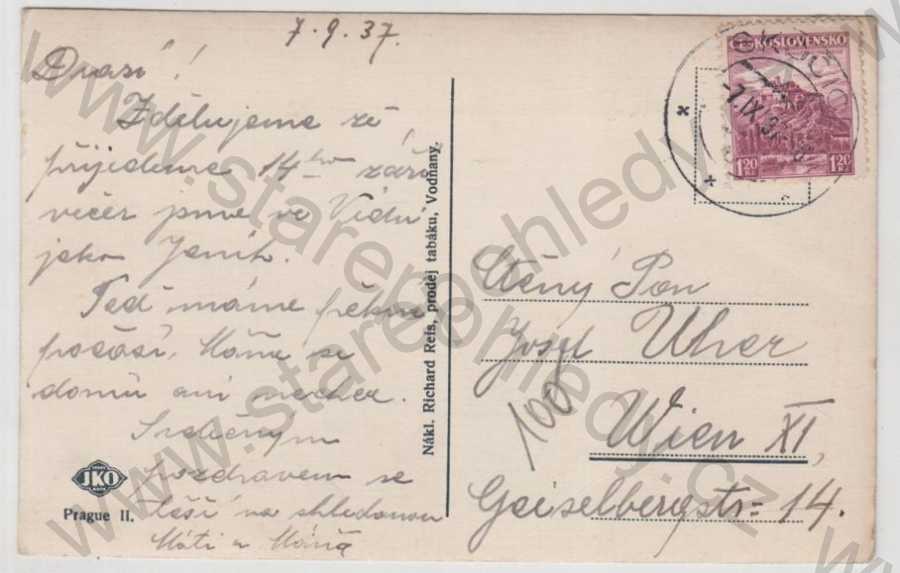 7.9.37.
Drazí!
Zdělujeme že
přijedeme 14ho září
večer jsme ve Vídni
jako Jeník.
Teď máme pěkné
počasí, Máňa se
domů ani nechce.
Srdečným
pozdravem se
těší na shledanou
Máti a Máňa
JKO
Prague II.
Nákl. Richard Reis, prodej tabáku, Vodňany.
ČESKOSLOVENSKO
1.20
1.20
7.IX.37
Ctěný Pan
Josef Uher
Wien XI,
Geiselbergstr= 14.
100
www.starepohledy.cz
www.starepohledy.cz